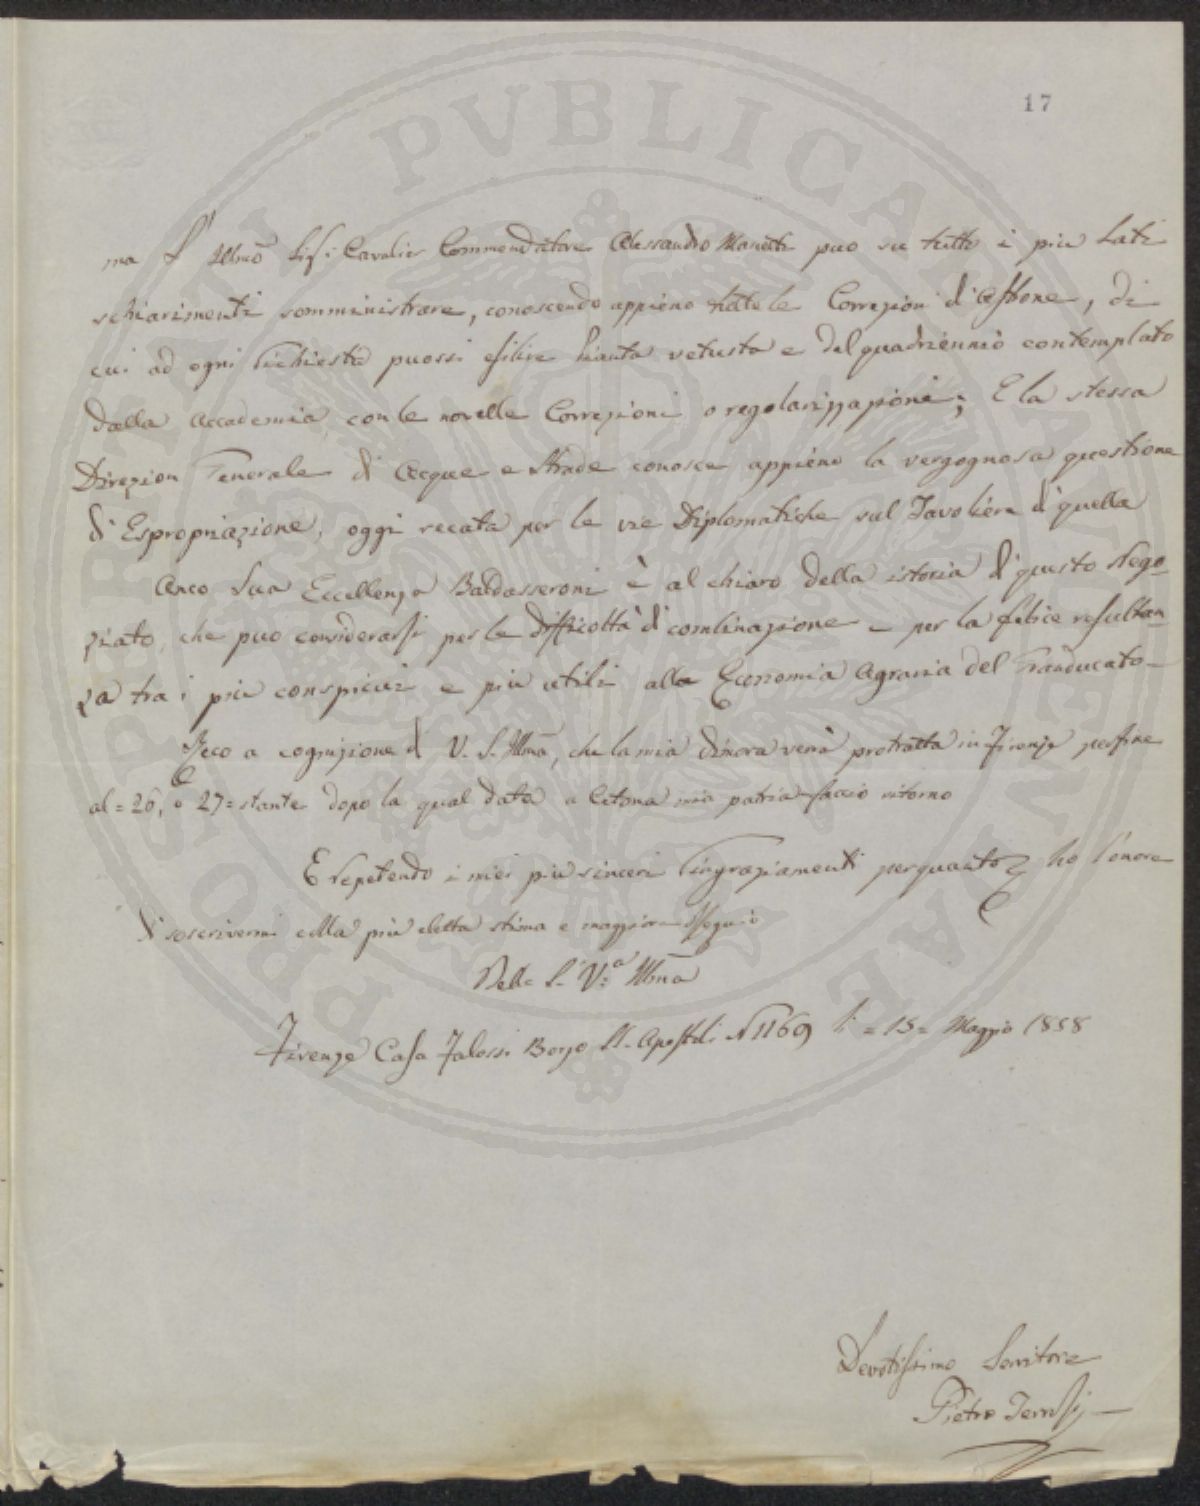 17
ma l'Illmo Sigr Cavalier Commendatore Alessandro Manetti puo su tutto i piu lati
schiarimenti somministrare, conoscendo appieno tutte le Correzioni d'Astrone, di
cui ad ogni richiesta puossi esibire Pianta vetusta e del quadriennio contemplato
dalla Accademia con le novelle Correzioni o regolarizzazioni; E la stessa
Direzion Generale di Acque e Strade conosce appieno la vergognosa questione
d'Espropriazione, oggi recata per le vie Diplomatiche sul Tavoliere di quella
Anco Sua Eccellenza Baldasseroni è al chiaro della istoria di questo Nego-
ziato, che puo considerarsi per le difficoltà di combinazione e per la felice resultan-
za tra i piu conspicui e piu utili alla Economia Agraria del Granducato-
Reco a cognizione di V. S. Illma, che la mia dimora verrà protratta in Firenze perfino
al = 26, o 27 = stante dopo la qual data a Cetona mia patria faccio ritorno
E repetendo i miei piu sinceri ringraziamenti per quanto ho l'onore
di soscrivermi colla piu eletta stima e maggiore ossequio
Della S. V.a Illma
Firenze Casa Jalossi Borgo SS. Apostoli N 1169 li = 15 = Maggio 1858
Devotissimo Servitore
Pietro